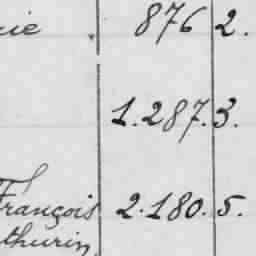 876 2.
1.287. 3.
François 2.180. 5.
thurin